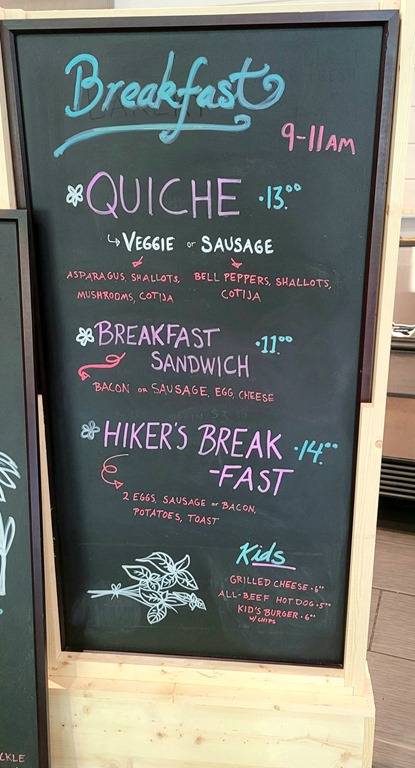 Breakfast
9-11AM
QUICHE •13.00
↳ VEGGIE or SAUSAGE
ASPARAGUS, SHALLOTS,
MUSHROOMS, COTIJA
BELL PEPPERS, SHALLOTS,
COTIJA
BREAKFAST •11.00
SANDWICH
BACON or SAUSAGE, EGG, CHEESE
HIKER'S BREAK •14.00
-FAST
2 EGGS, SAUSAGE or BACON,
POTATOES, TOAST
Kids
GRILLED CHEESE •6
ALL-BEEF HOT DOG •5
KID'S BURGER •6
W/ CHIPS
CKLE